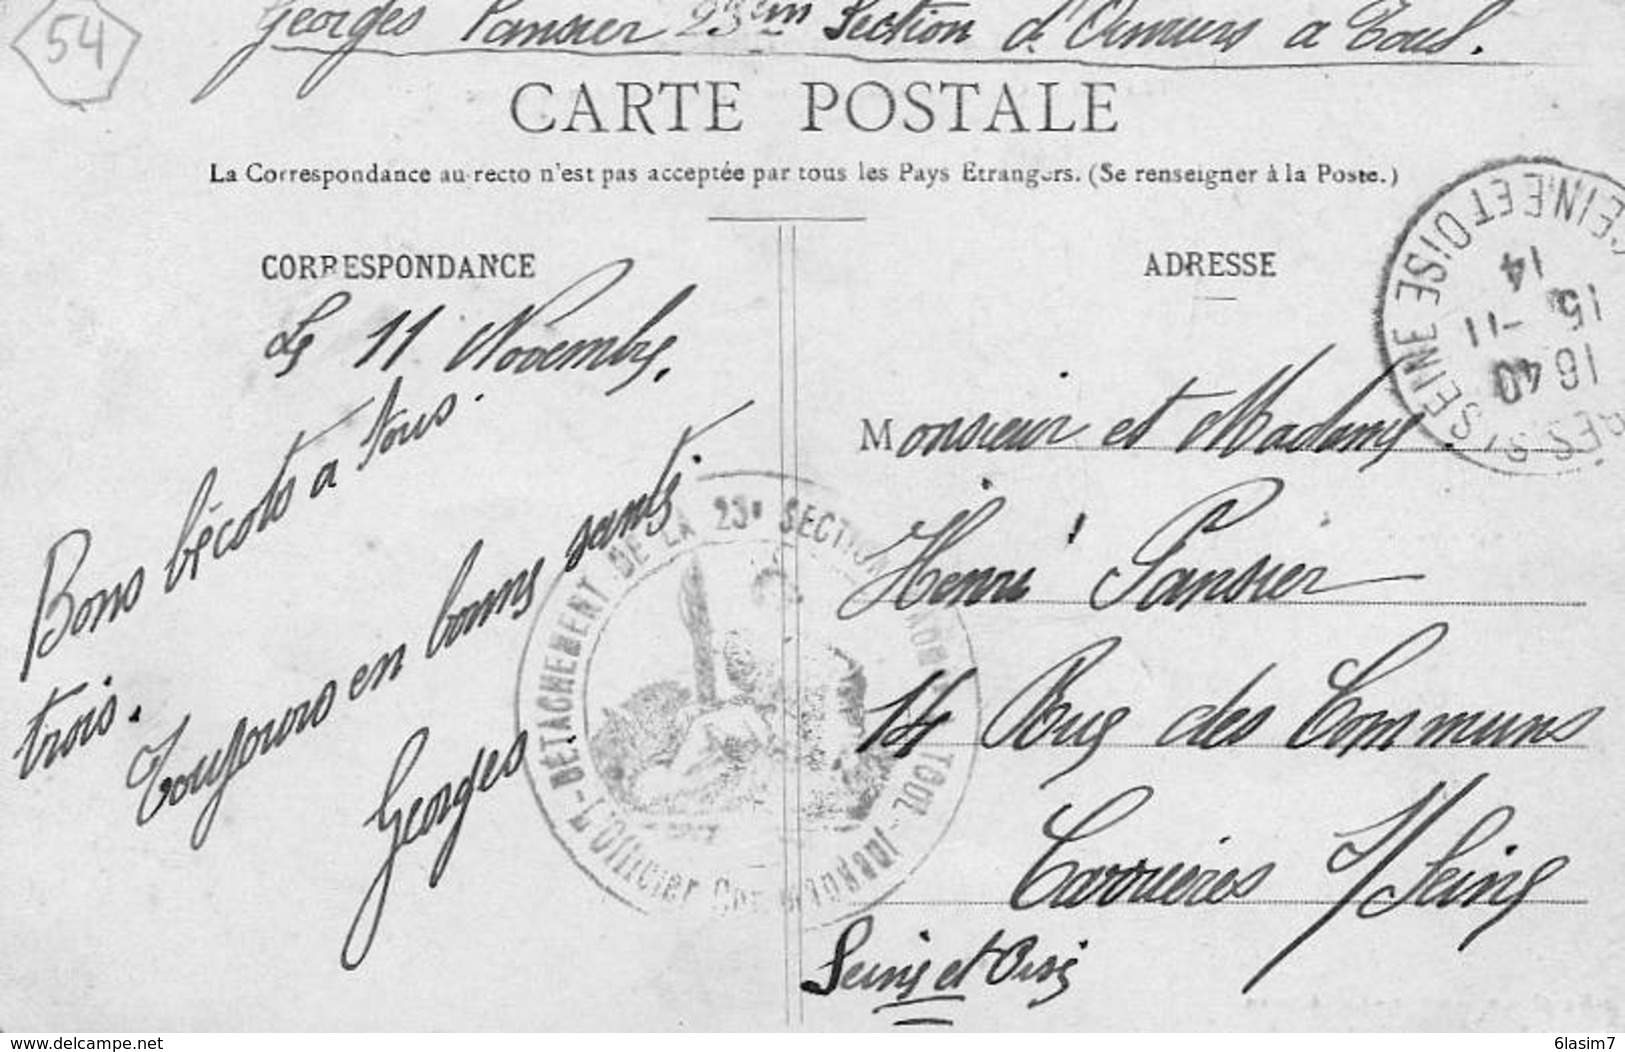 54
Georges Pansier 23em Section d'Ouvriers a Toul.
CARTE POSTALE
La Correspondance au recto n'est pas acceptée par tous les Pays Etrangers. (Se renseigner à la Poste.)
CORRESPONDANCE
Le 11 Novembre.
Bons bécots a tous
trois.
Toujours en bonne santé.
Georges
DÉTACHEMENT DE LA 23e SECTION
TOUL
L'Officier Commandant
ADRESSE
Monsieur et Madame
Henri Pansier
14 Rue des Communs
Carrières S/Seine
Seine et Oise
S/ SEINE SEINE ET OISE
16 40
15 -11
14
www.delcampe.net
6lasim7